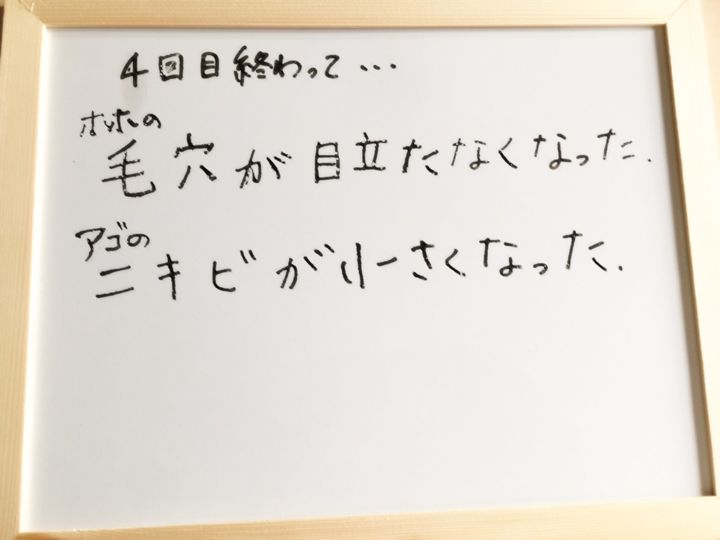 4回目終わって…
ホッホの
毛穴が目立たなくなった.
アゴの
ニキビが小さくなった.